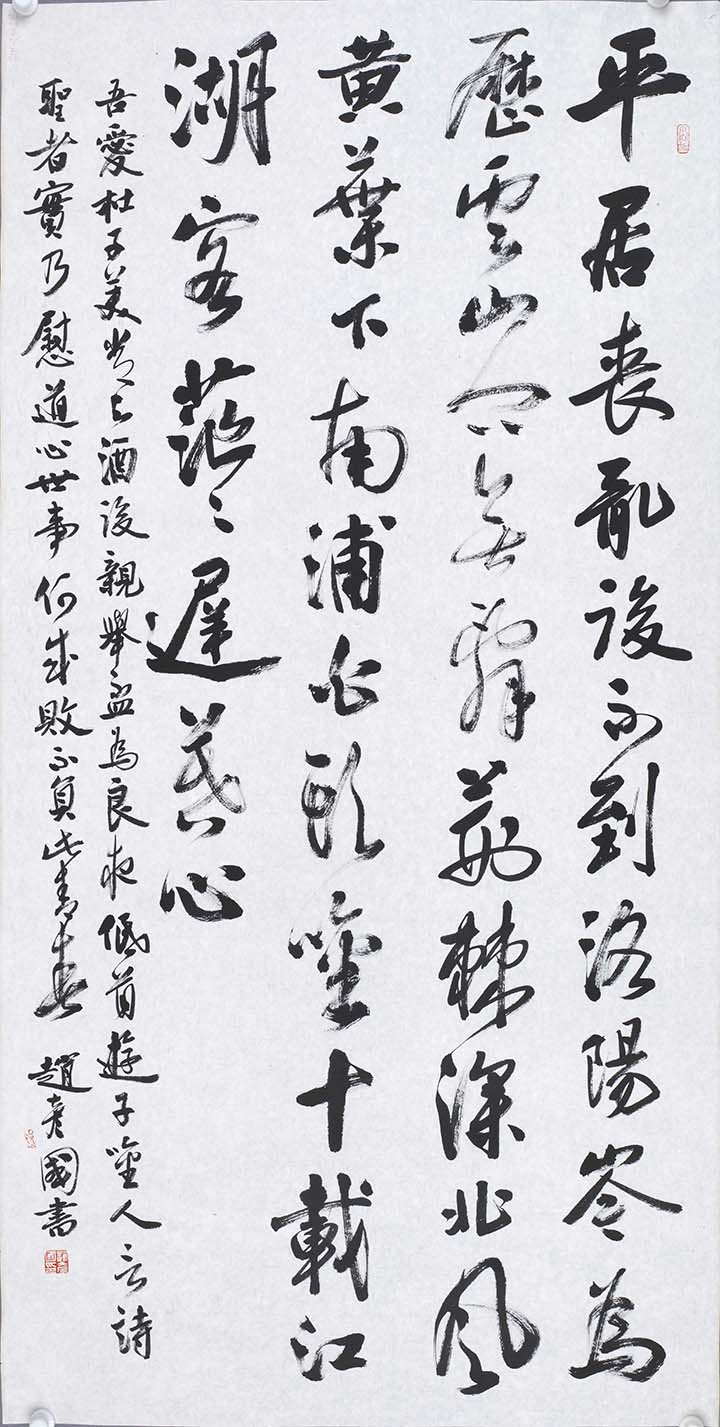 平居喪亂後不到洛陽岑為
歷雲山問無辭荊棘深北風
黄葉下南浦白頭唫十載江
湖客茫〻遲暮心
吾愛杜子美酒後親舉盃為良夜低首遊子唫人言詩
聖者實乃慰道心世事何成敗不負此青春 趙彥國書